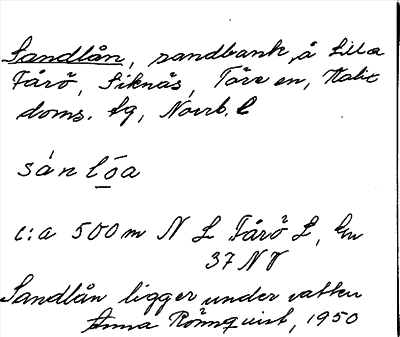 Sandlån, sandbank, å Lilla
Fårö, Siknäs, Töre en, Kalix
doms. lg, Norrb. l
sánlóa
c:a 500 m N L Fårö L, kv
37 NV
Sandlån ligger under vatten
Anna Rönnquist, 1950